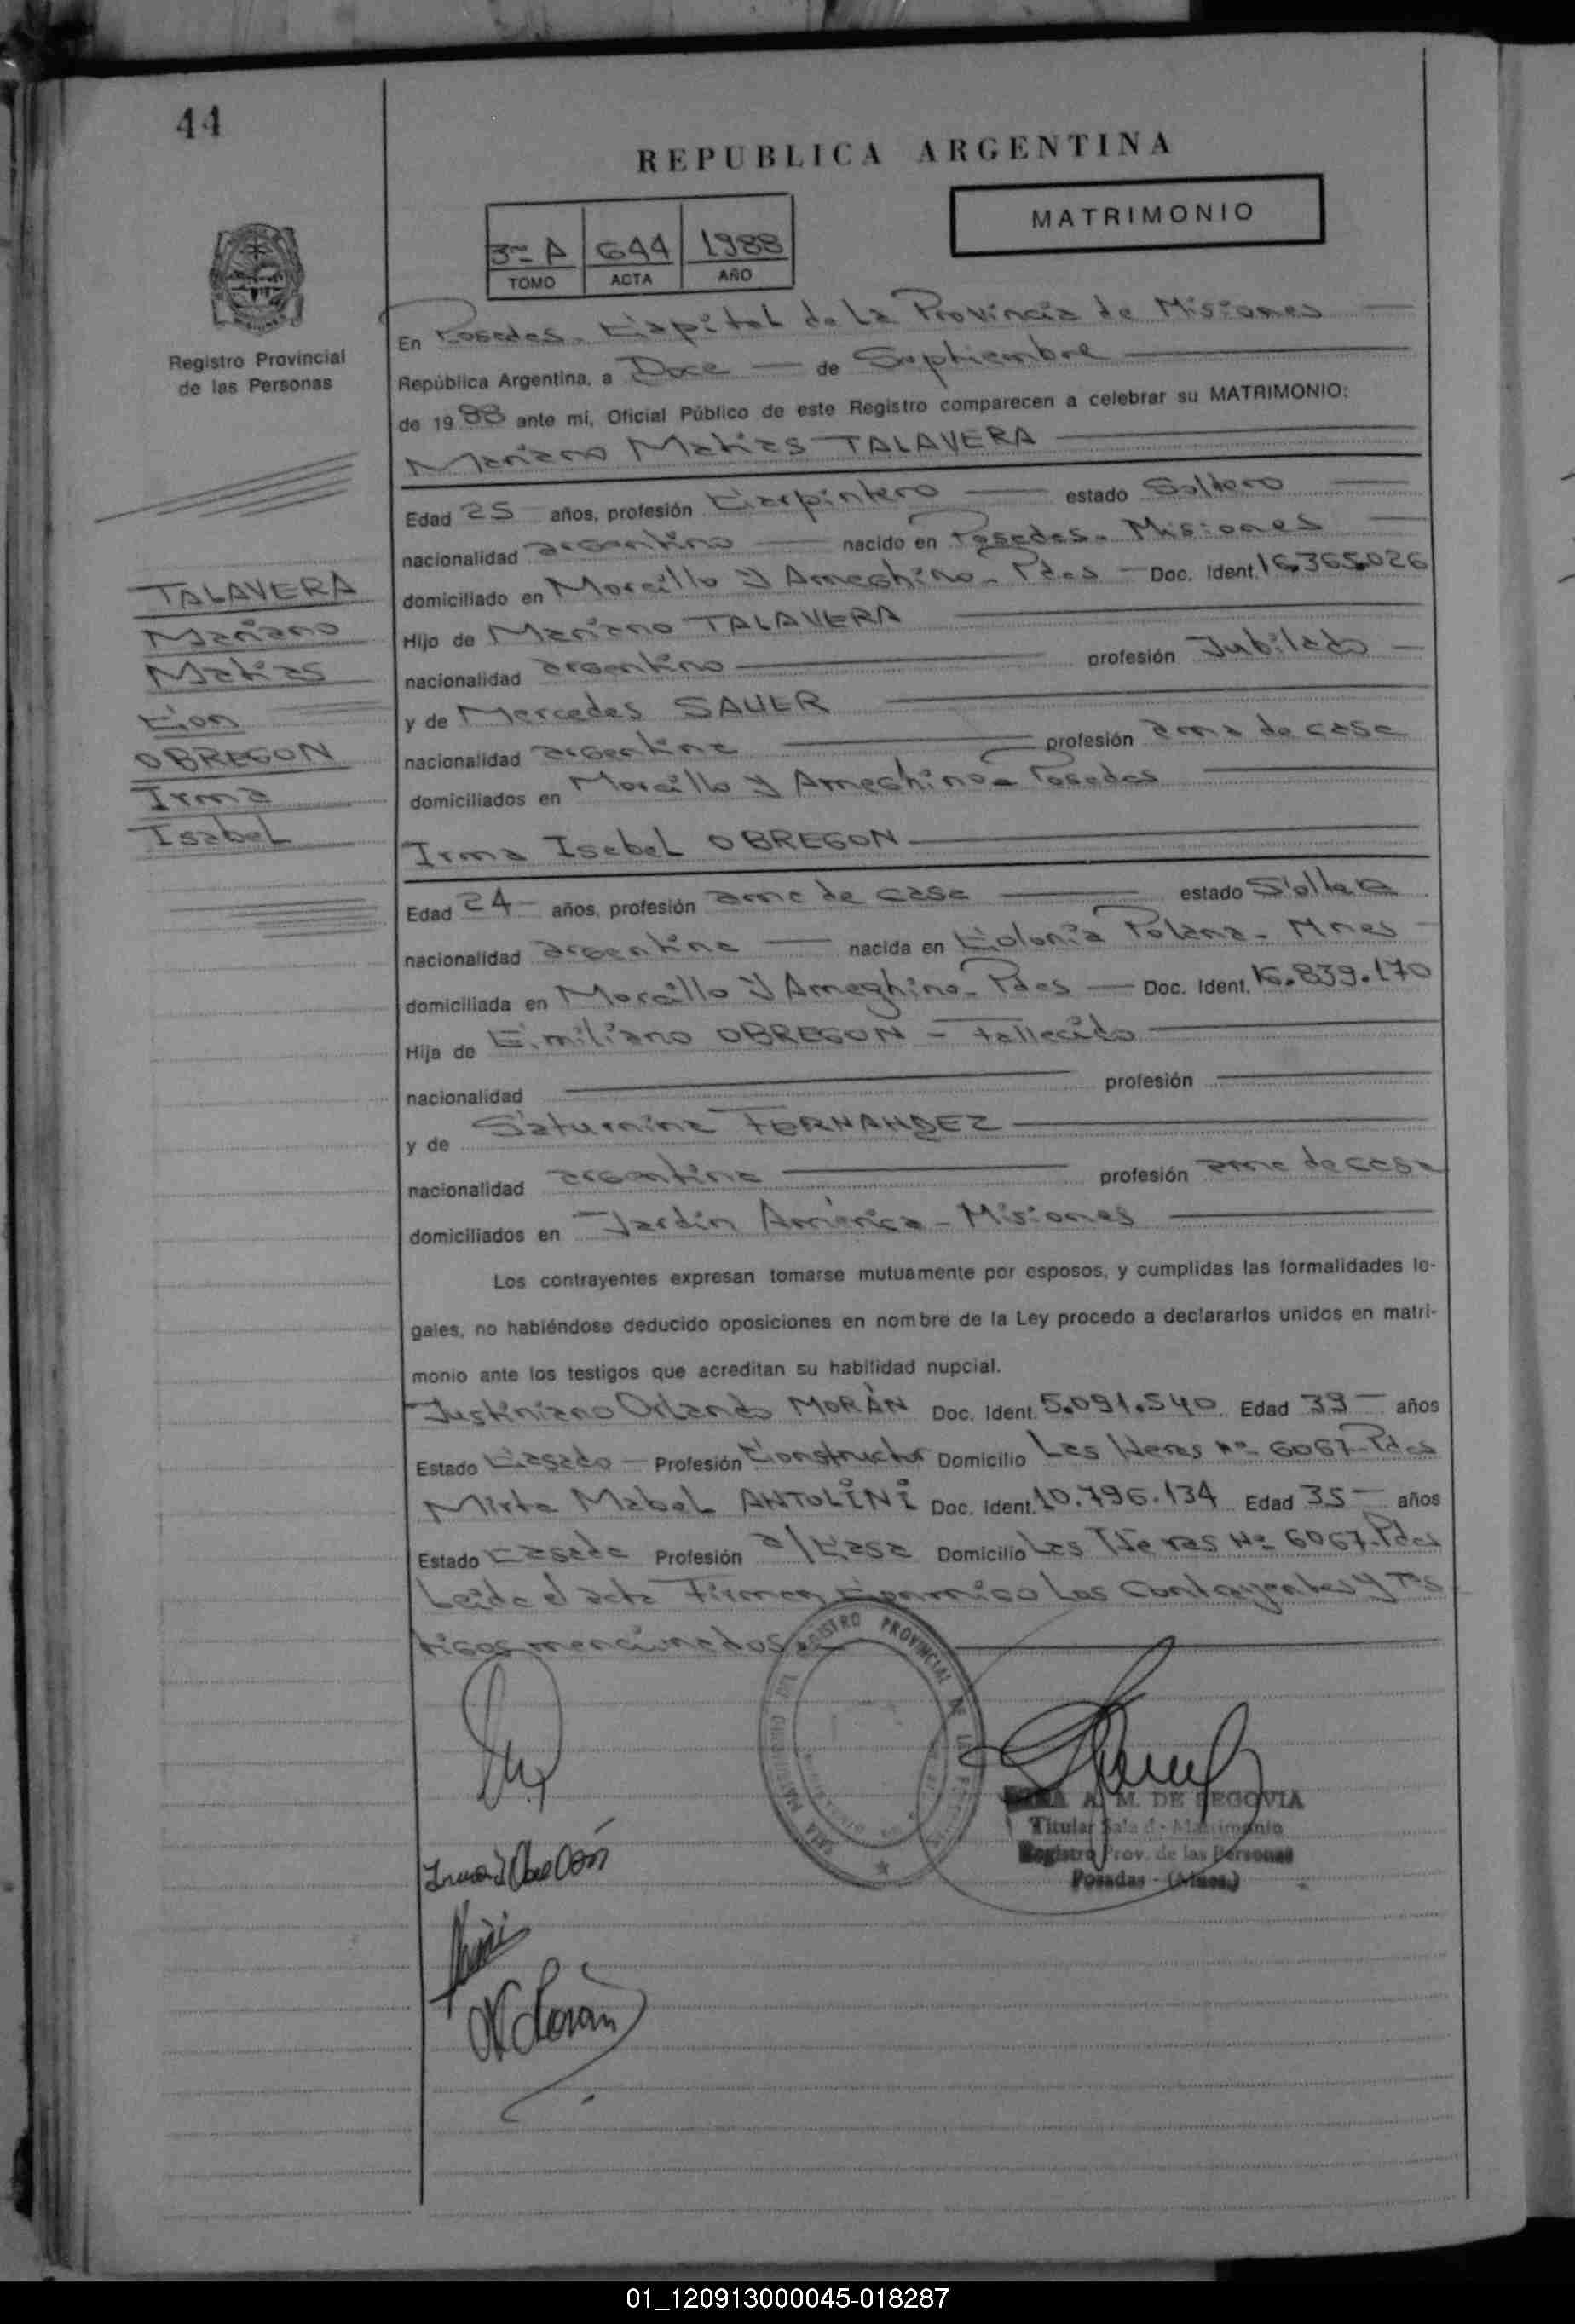 44
REPUBLICA ARGENTINA
MATRIMONIO
3º A 644 1988
TOMO ACTA AÑO
Registro Provincial
de las Personas
En Posadas. Capital de La Provincia de Misiones
República Argentina, a Doce de Septiembre
de 1988 ante mí, Oficial Público de este Registro comparecen a celebrar su MATRIMONIO:
Mariano Matias TALAVERA
Edad 25 años, profesión Carpintero estado Soltero
nacionalidad argentino nacido en Posadas. Misiones
domiciliado en Morcillo y Ameghino. Pdas Doc. Ident. 16.365.026
Hijo de Mariano TALAVERA
nacionalidad argentino profesión Jubilado
y de Mercedes SAUER
nacionalidad argentina profesión ama de casa
domiciliados en Morcillo y Ameghino - Posadas
TALAVERA
Mariano
Matias
Con
OBREGON
Irma
Isabel
Irma Isabel OBREGON
Edad 24 años, profesión ama de casa estado Soltera
nacionalidad argentina nacida en Colonia Polana - Mnes
domiciliada en Morcillo y Ameghino - Pdas Doc. Ident. 16.839.170
Hija de Emiliano OBREGON - Fallecido
nacionalidad profesión
y de Saturnina FERNANDEZ
nacionalidad argentina profesión ama de casa
domiciliados en Jardín América - Misiones
Los contrayentes expresan tomarse mutuamente por esposos, y cumplidas las formalidades le-
gales, no habiéndose deducido oposiciones en nombre de la Ley procedo a declararlos unidos en matri-
monio ante los testigos que acreditan su habilidad nupcial.
Justiniano Orlando MORÁN Doc. Ident. 5.091.540 Edad 39 años
Estado Casado Profesión Constructor Domicilio Las Heras Nº 6067-Pdas
Mirta Mabel ANTOLINI Doc. Ident. 10.796.134 Edad 35 años
Estado Casada Profesión a/Casa Domicilio Las Heras Nº 6067-Pdas
Leida el acta Firman Conmigo Los Contrayentes y Tes
tigos mencionados
REGISTRO PROVINCIAL DE LAS
A. M. DE SEGOVIA
Titular Sala de Matrimonio
Registro Prov. de las Personas
Posadas - (Mnes.)
01_120913000045-018287